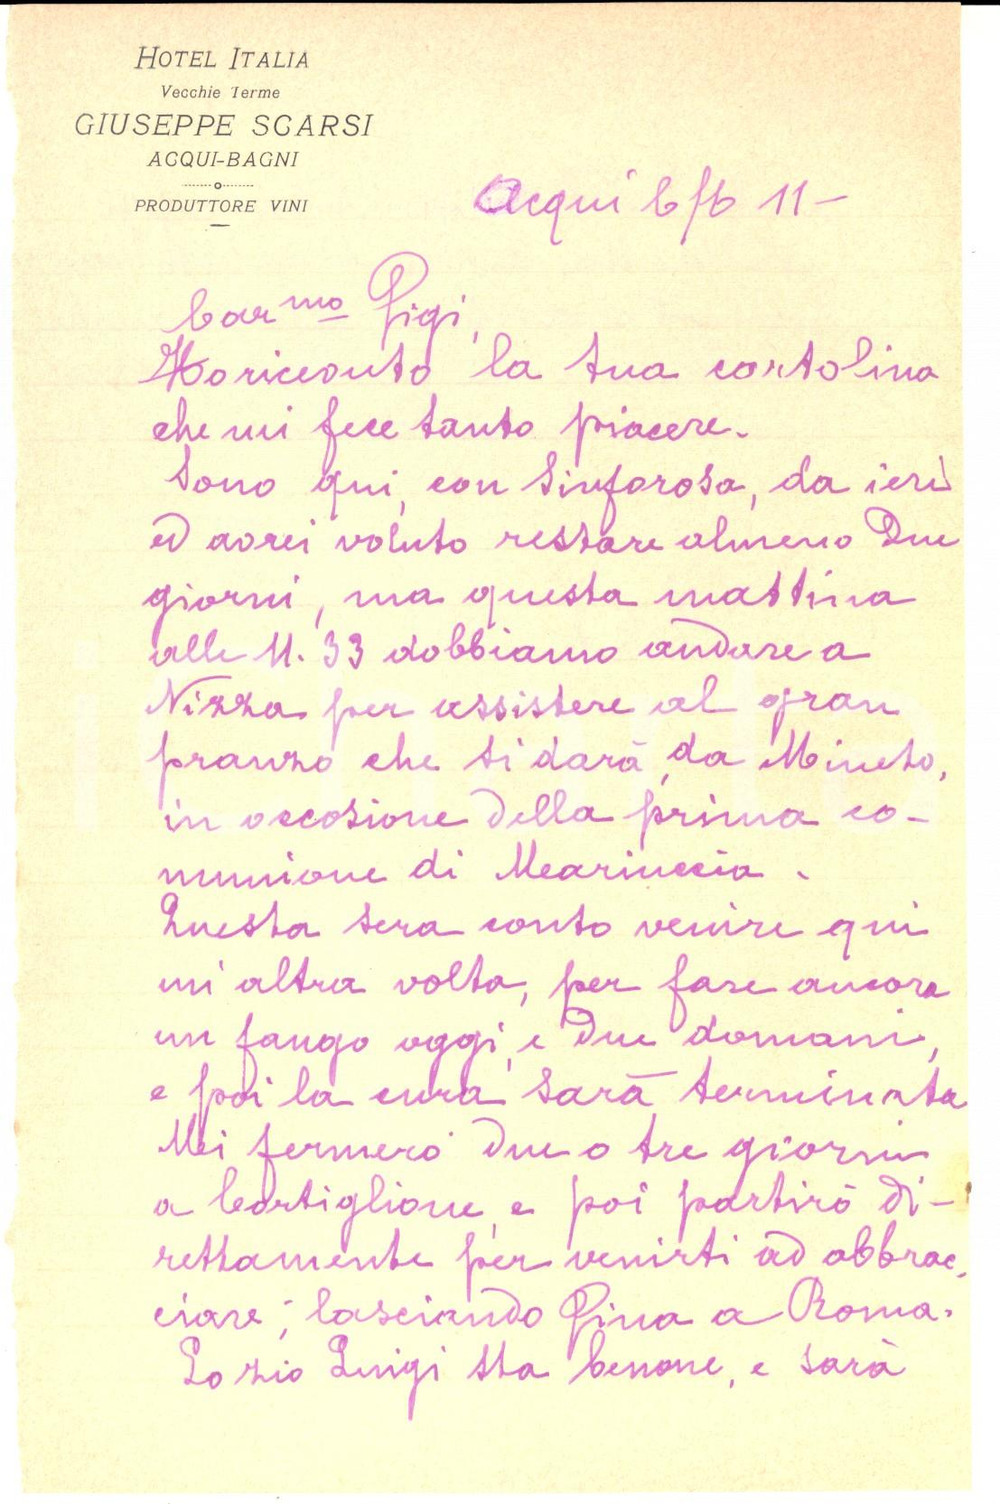 HOTEL ITALIA
Vecchie Terme
GIUSEPPE SCARSI
ACQUI-BAGNI
PRODUTTORE VINI
Acqui 6/6 11-
Car.mo Gigi,
Ho ricevuto la tua cartolina
che mi fece tanto piacere.
Sono qui, con Sinforosa, da ieri
ed avrei voluto restare almeno due
giorni, ma questa mattina
alle 11.33 dobbiamo andare a
Nizza per assistere al gran
pranzo che si darà da Mineto,
in occasione della prima co-
munione di Mariuccia.
Questa sera conto venire qui
un'altra volta, per fare ancora
un fango oggi, e due domani,
e poi la cura sarà terminata
Mi fermerò due o tre giorni
a Cortiglione, e poi partirò di-
rettamente per venirti ad abbrac-
ciare, lasciando Gina a Roma.
Lo zio Luigi sta benone, e sarà